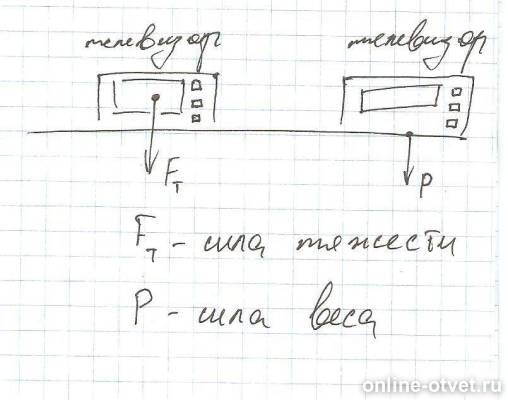 телевизор телевизор
Fт P
Fт - сила тяжести
P - сила веса
online-otvet.ru